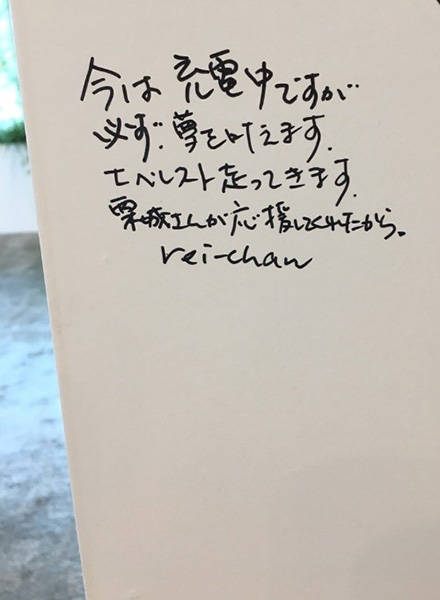 今は 充電中ですが
必ず.夢を叶えます.
エベレスト走ってきます.
栗城さんが応援してくれたから。
rei-chan